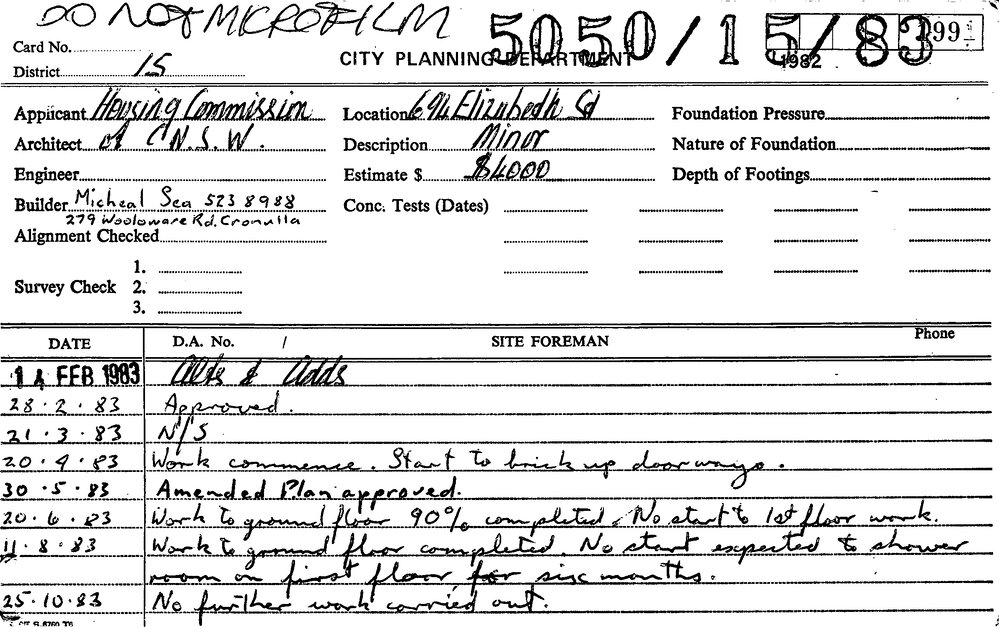 DO NOT MICROFILM
5050/15/83
Card No.
CITY PLANNING DEPARTMENT
1982
District 15
Applicant Housing Commission Location 694 Elizabeth St Foundation Pressure
Architect of N.S.W. Description Minor Nature of Foundation
Engineer Estimate $ $4000 Depth of Footings
Builder Micheal Sea 523 8988 Conc. Tests (Dates)
279 Woolooware Rd. Cronulla
Alignment Checked
1.
Survey Check 2.
3.
DATE D.A. No. / SITE FOREMAN Phone
14 FEB 1983 Alts & Adds
28.2.83 Approved.
21.3.83 N/S
20.4.83 Work commence. Start to brick up doorways.
30.5.83 Amended Plan approved.
20.6.83 Work to ground floor 90% completed. No start to 1st floor work.
11.8.83 Work to ground floor completed. No start expected to shower
room on first floor for six months.
25.10.83 No further work carried out.